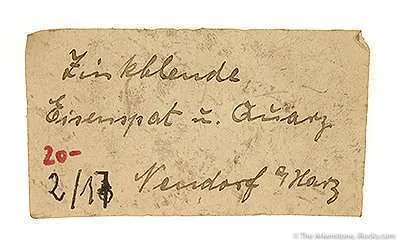 Zinkblende
Eisenspat u. Quarz
20-
2/17 Neudorf a/Harz
© The Arkenstone, iRocks.com